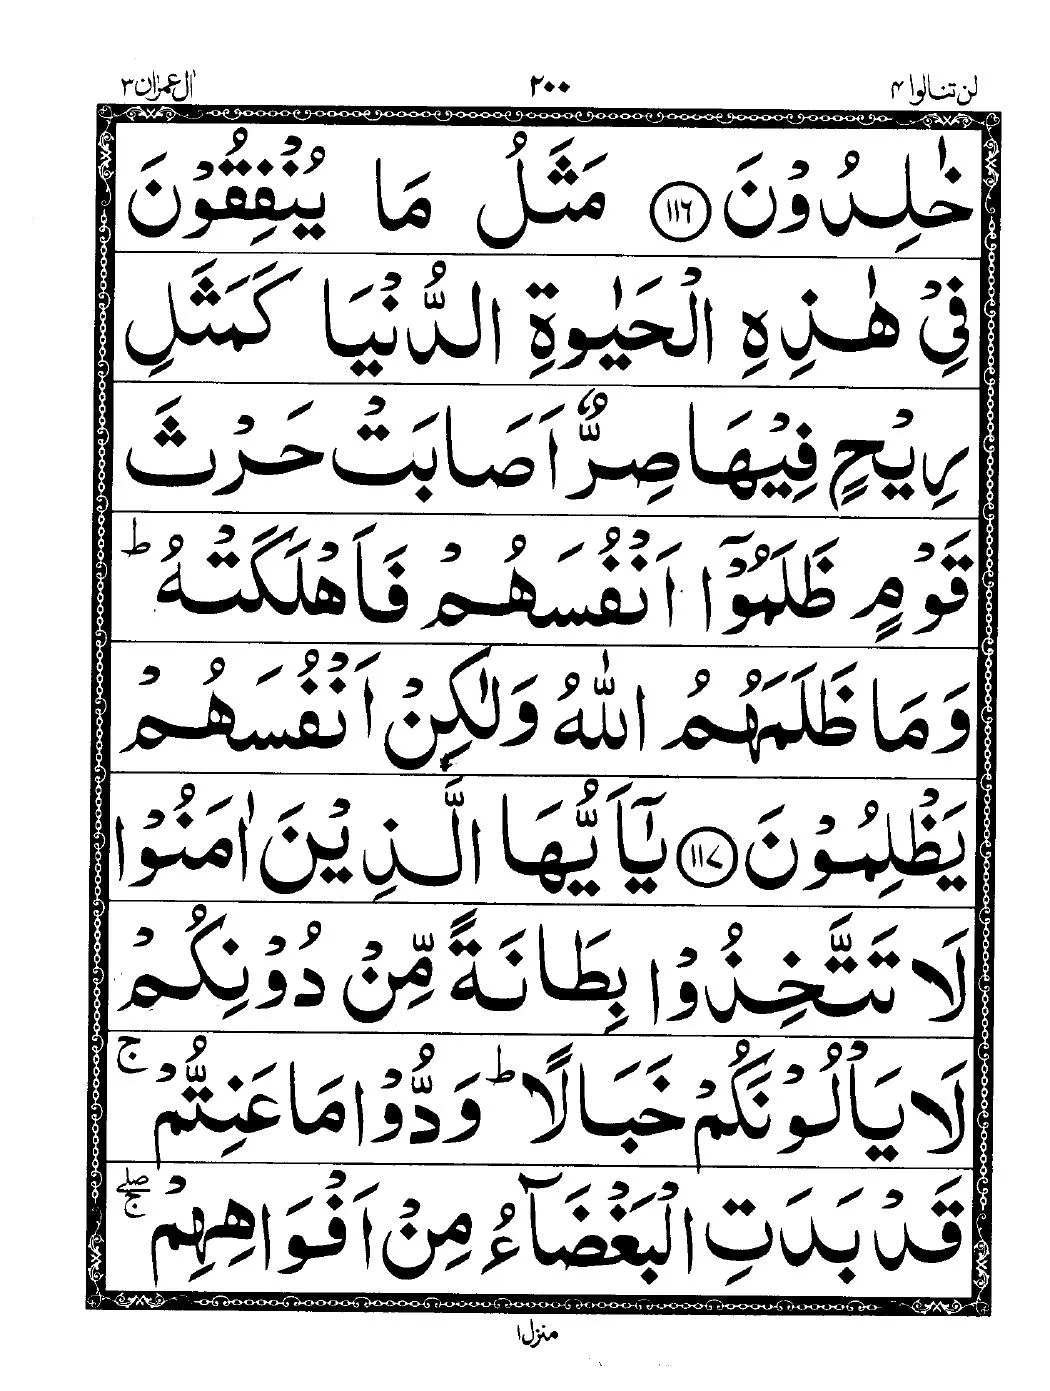 لن تنالوا ۴
۲۰۰
اٰل عمرٰن ۳
خٰلِدُوْنَ ۝۱۱۶ مَثَلُ مَا يُنْفِقُوْنَ
فِيْ هٰذِهِ الْحَيٰوةِ الدُّنْيَا كَمَثَلِ
رِيْحٍ فِيْهَا صِرٌّ اَصَابَتْ حَرْثَ
قَوْمٍ ظَلَمُوْٓا اَنْفُسَهُمْ فَاَهْلَكَتْهُ ؕ
وَمَا ظَلَمَهُمُ اللّٰهُ وَلٰكِنْ اَنْفُسَهُمْ
يَظْلِمُوْنَ ۝۱۱۷ يٰٓاَيُّهَا الَّذِيْنَ اٰمَنُوْا
لَا تَتَّخِذُوْا بِطَانَةً مِّنْ دُوْنِكُمْ
لَا يَاْلُوْنَكُمْ خَبَالًا ؕ وَدُّوْا مَا عَنِتُّمْ ۚ
قَدْ بَدَتِ الْبَغْضَآءُ مِنْ اَفْوَاهِهِمْ ۖۚ
منزل ۱